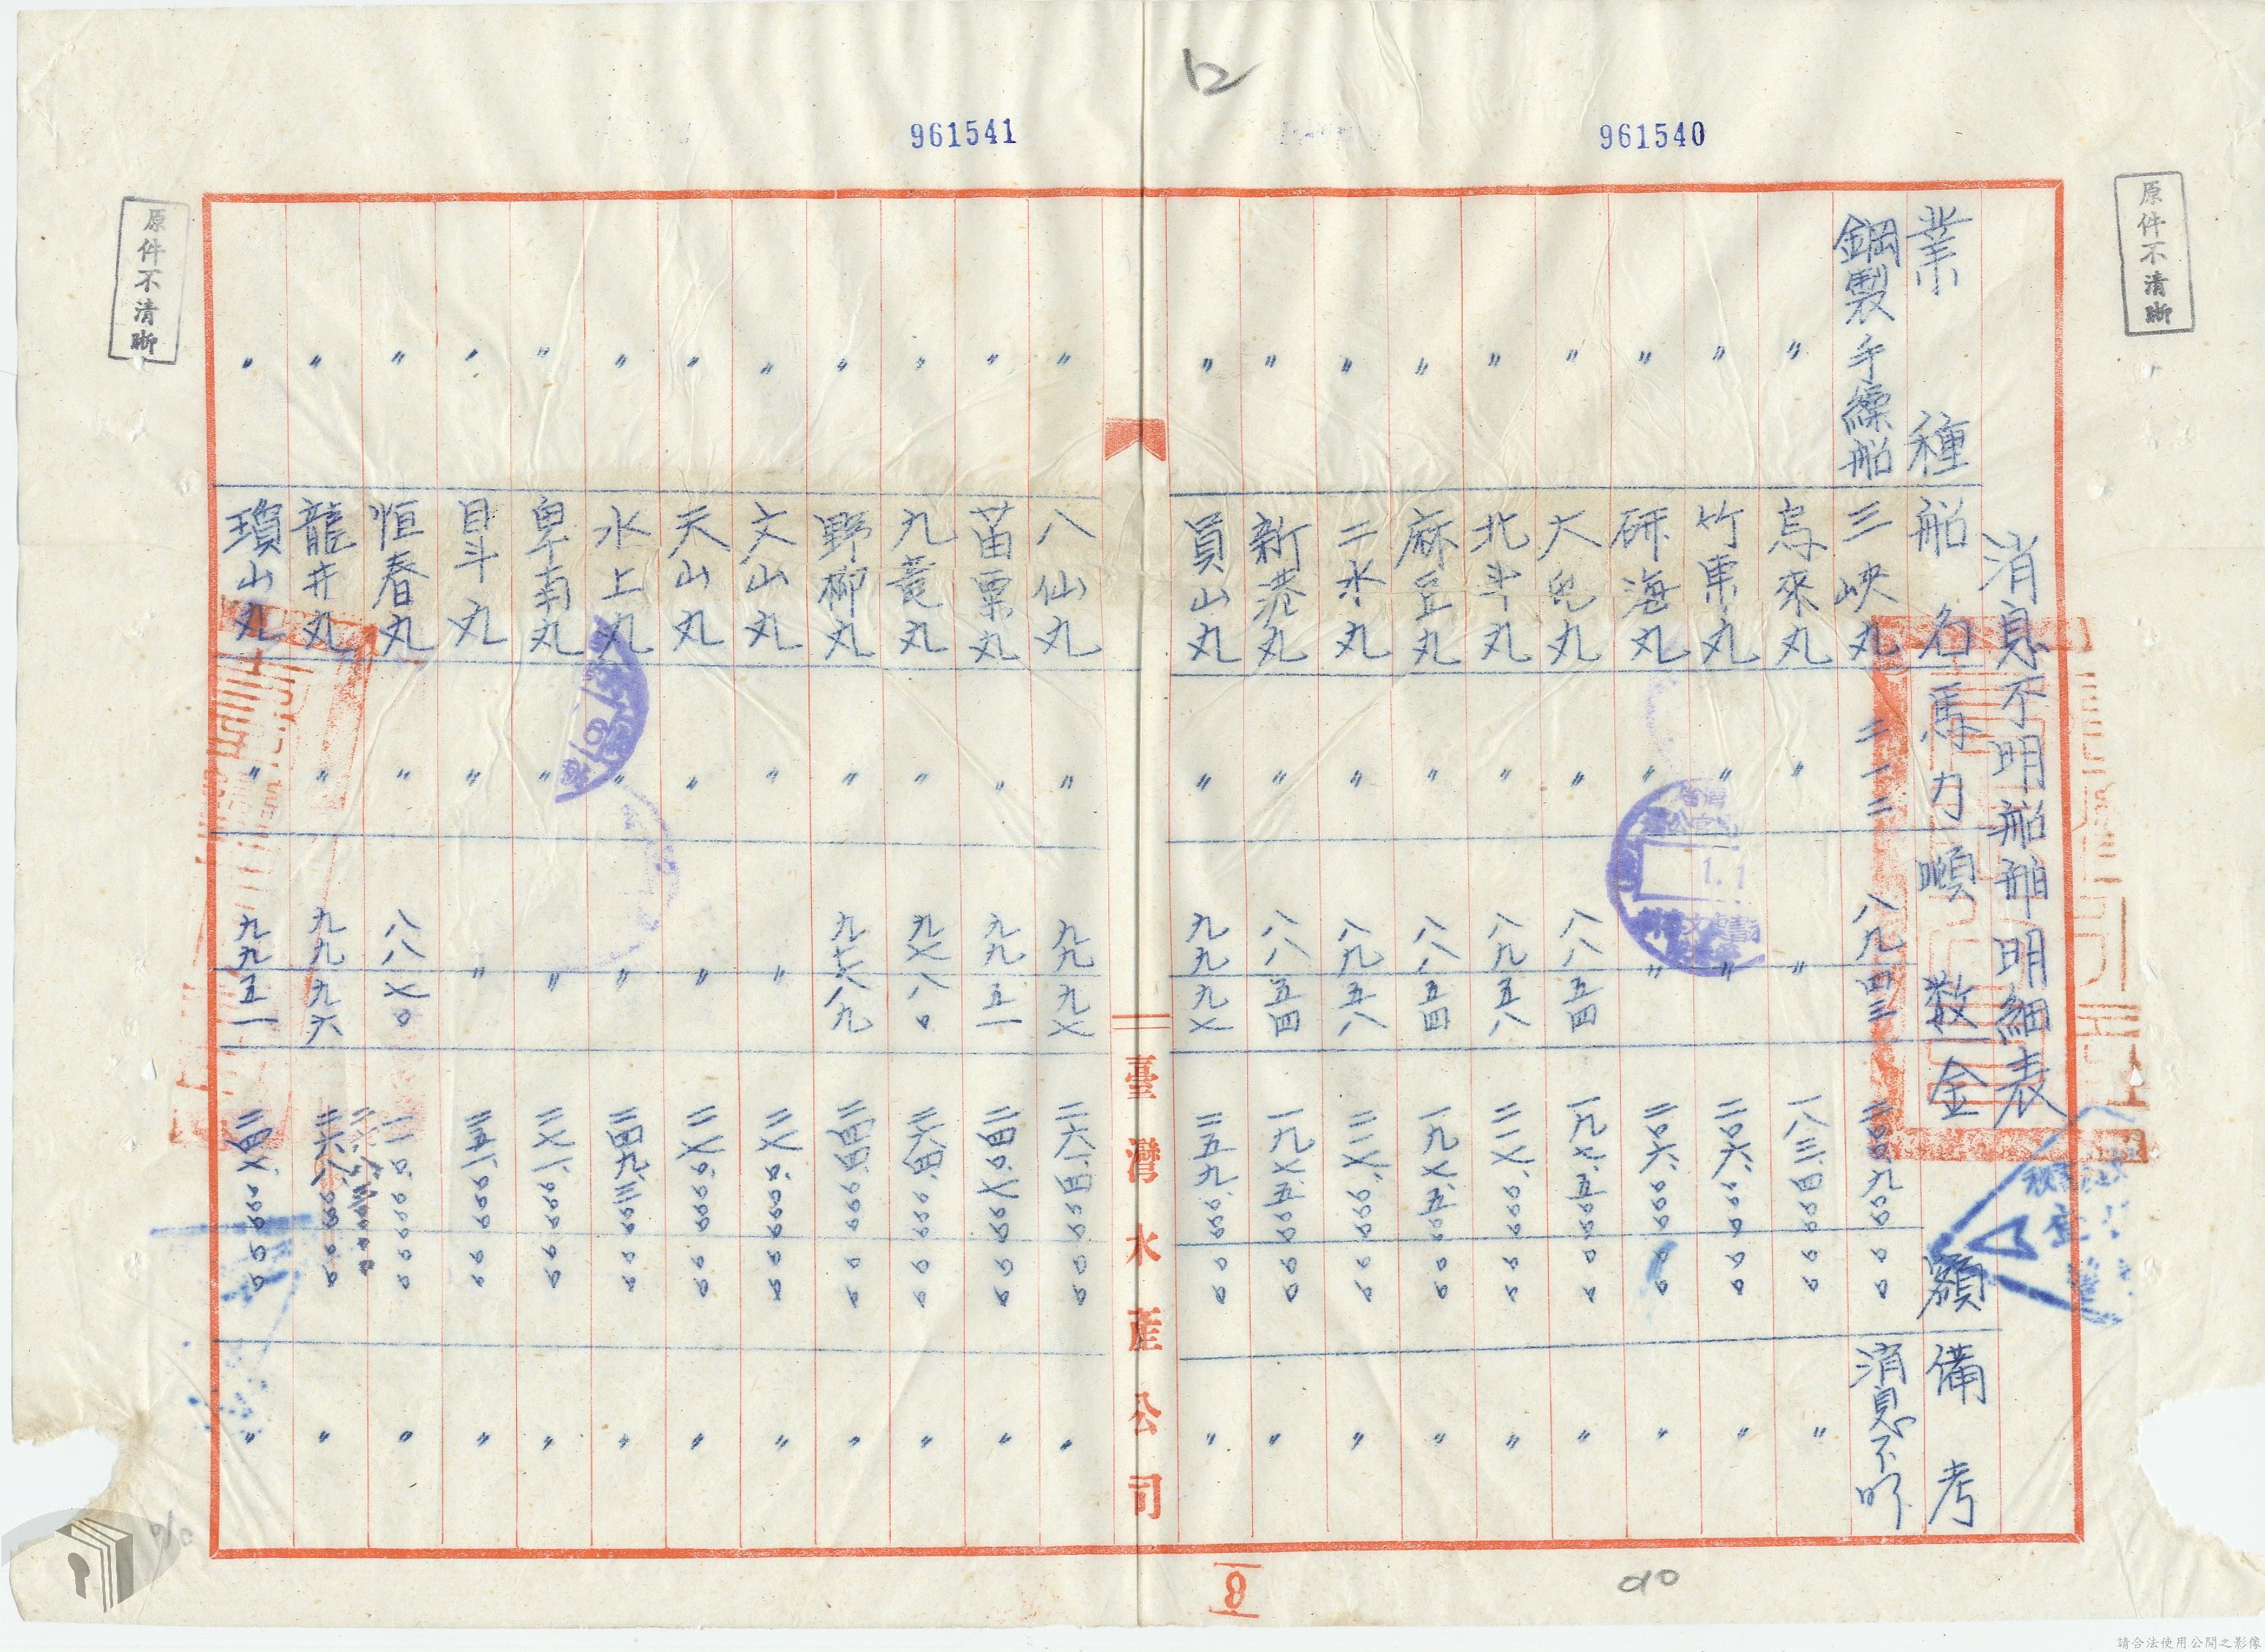 961540
961541
原件不清晰
原件不清晰
消息不明船舶明細表
業種 船名 馬力 噸數 金額 備考
鋼製手繰船 三峽丸 二一二 八九四三 二〇〇九〇〇〇〇 消息不明
〃 烏來丸 〃 〃 一八三、四〇〇〇〇 〃
〃 竹東丸 〃 〃 二〇六、〇〇〇〇〇 〃
〃 研海丸 〃 〃 二〇六、〇〇〇〇〇 〃
〃 大屯丸 〃 八八五四 一九七、五〇〇〇〇 〃
〃 北斗丸 〃 八九五八 〃
〃 麻豆丸 〃 八八五四 一九七、五〇〇〇〇 〃
〃 二水丸 〃 八九五八 〃
〃 新港丸 〃 八八五四 一九七、五〇〇〇〇 〃
〃 員山丸 〃 九九九七 二五九、〇〇〇〇〇 〃
臺灣水產公司
〃 八仙丸 〃 九九九七 二六一、四〇〇〇〇 〃
〃 苗栗丸 〃 九九五一 二四〇、七〇〇〇〇 〃
〃 九竟丸 〃 九七八〇 二六四、〇〇〇〇〇 〃
〃 野柳丸 〃 二四四、〇〇〇〇〇 〃
〃 文山丸 〃 〃 〃
〃 天山丸 〃 〃 〃
〃 水上丸 〃 〃 二四九、三〇〇〇〇 〃
〃 卑南丸 〃 〃 二七一、〇〇〇〇〇 〃
〃 貝斗丸 〃 〃 二五一、〇〇〇〇〇 〃
〃 恒春丸 〃 八八七〇 〃
〃 龍井丸 〃 九九九六 二六八、〇〇〇〇〇 〃
〃 瓊山丸 〃 九九五一 〃
8
請合法使用公開之影像